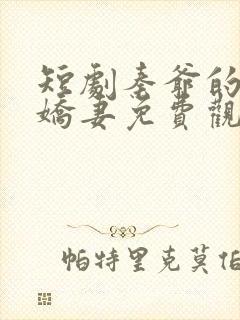 短劇秦爺的
嬌妻免費觀
帕特里克莫伯